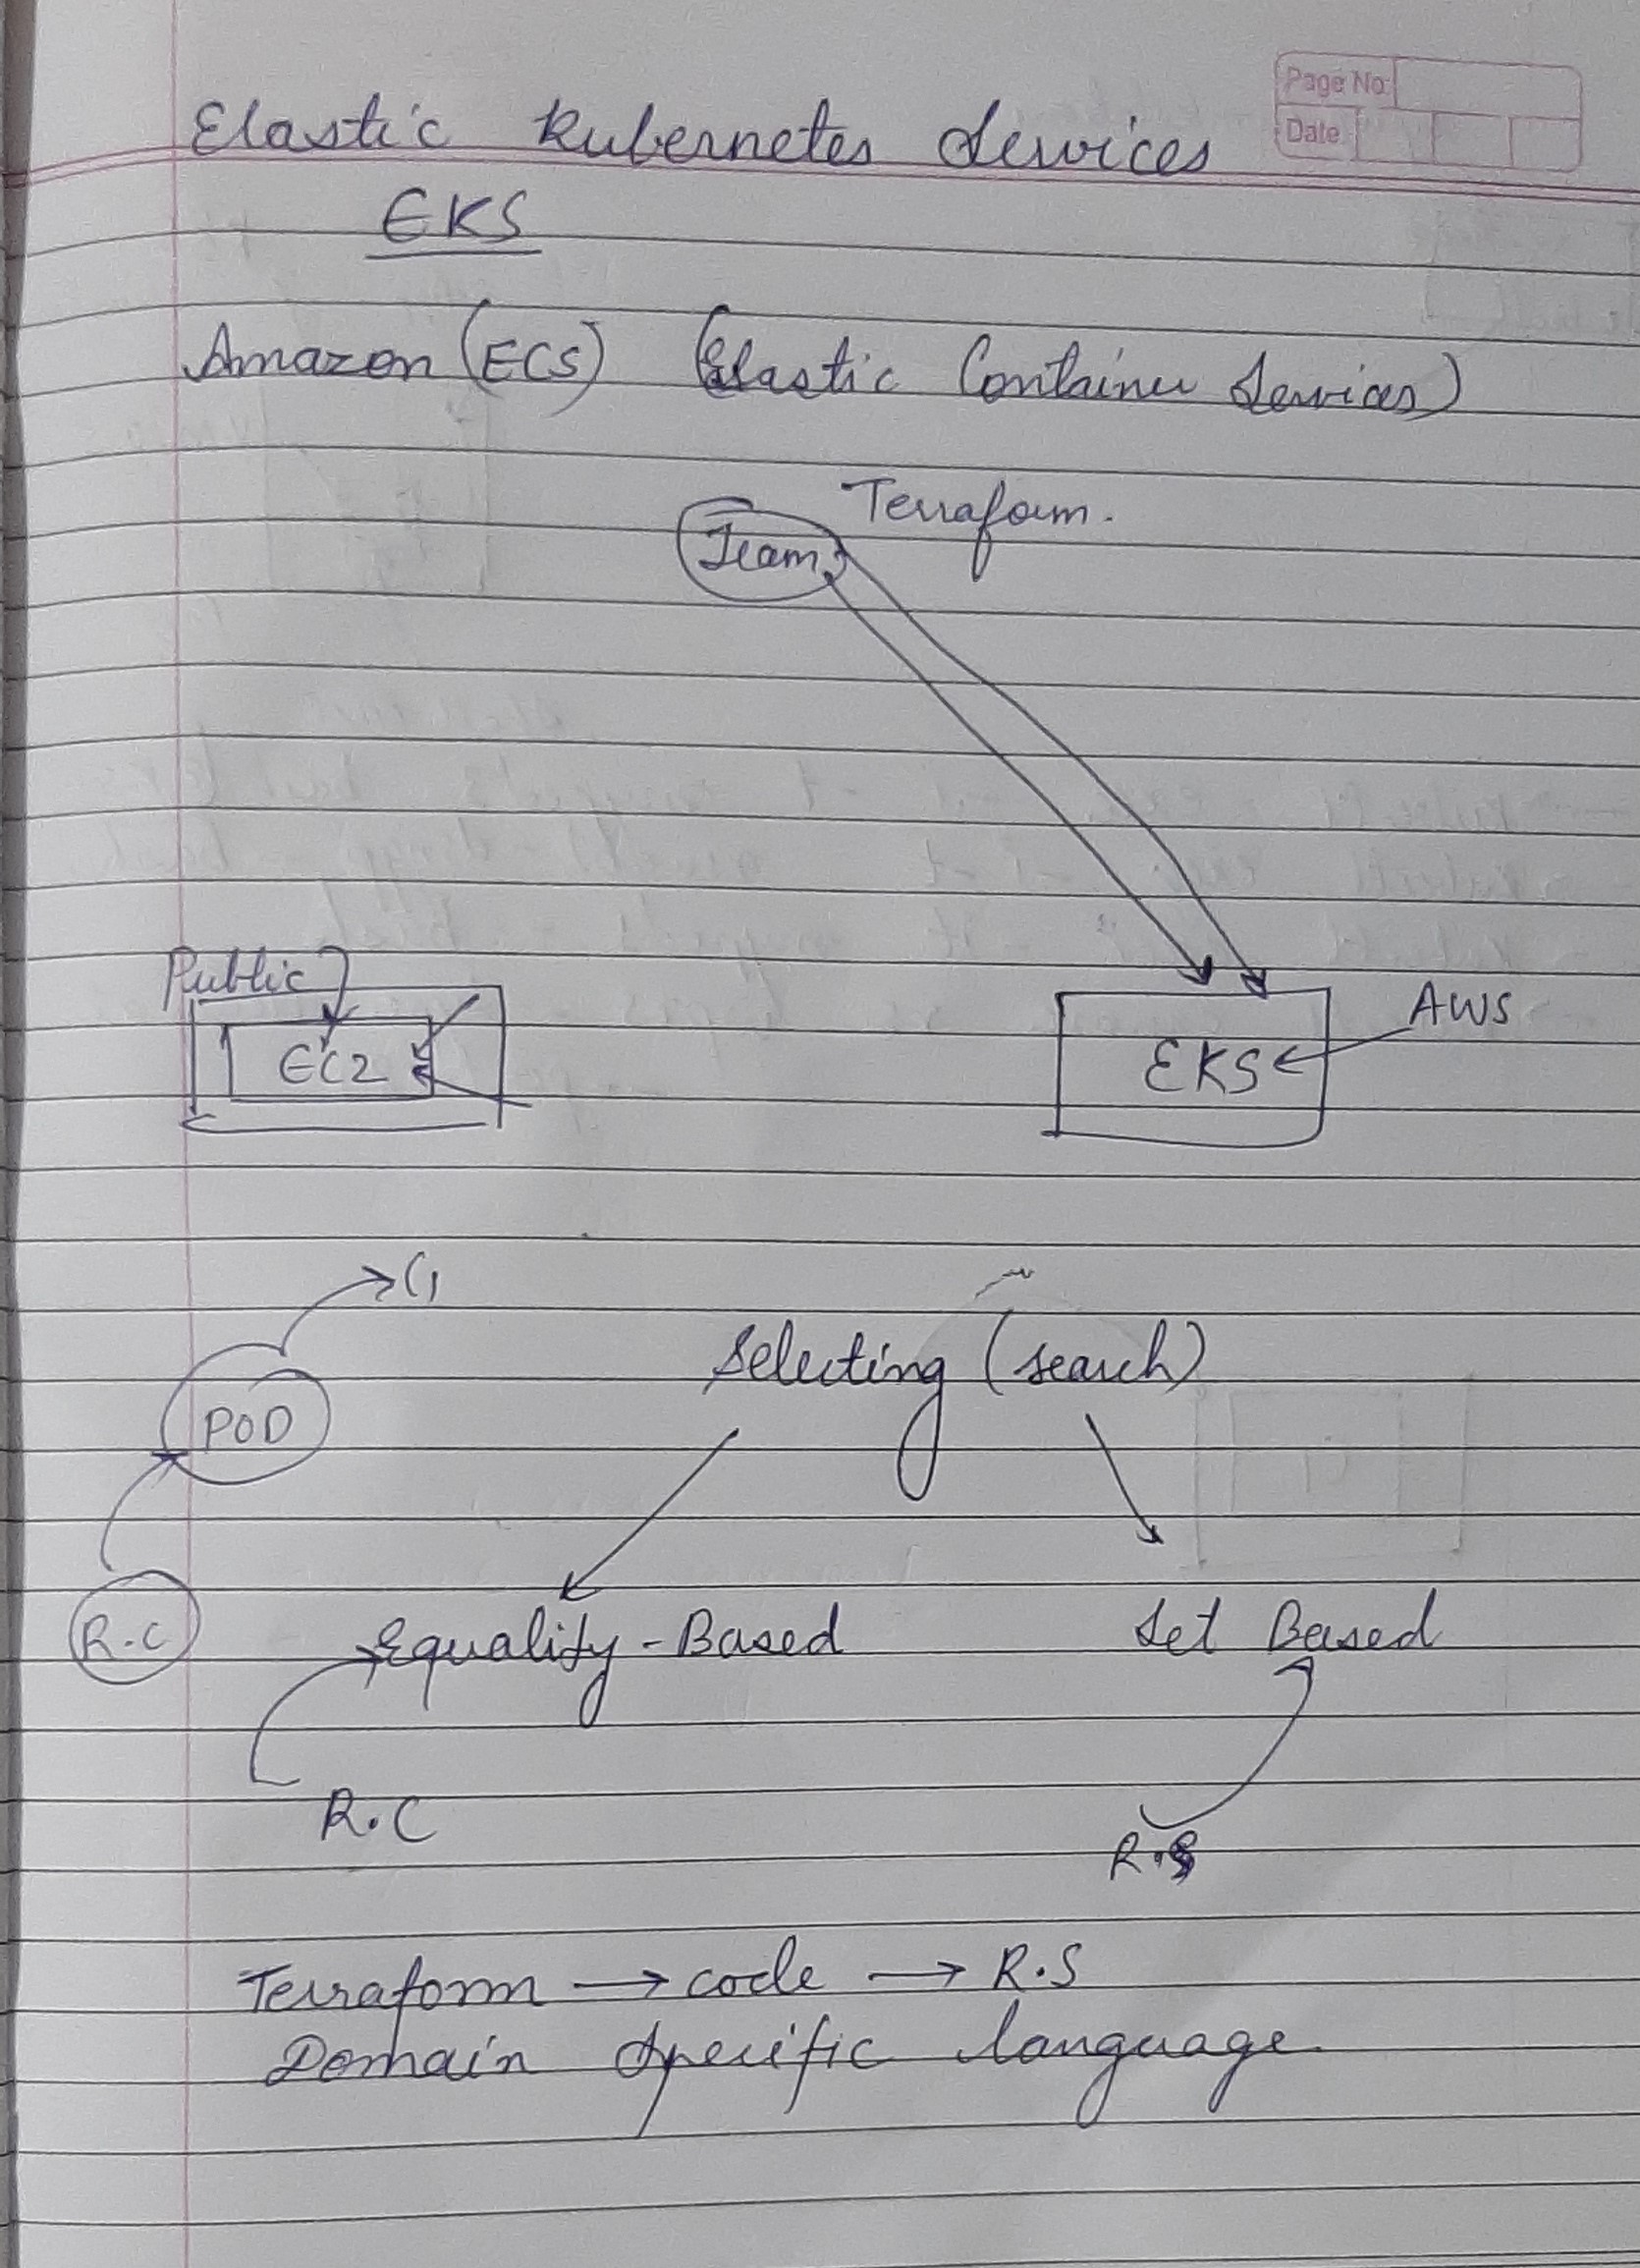 Page No
Date
Elastic Kubernetes Services
EKS
Amazon (ECS) (Elastic Container Services)
Terraform.
Team
Public
EC2
AWS
EKS
C1
Selecting (search)
POD
R.C
Equality-Based
Set Based
R.C
R.S
Terraform → code → R.S
Domain Specific language